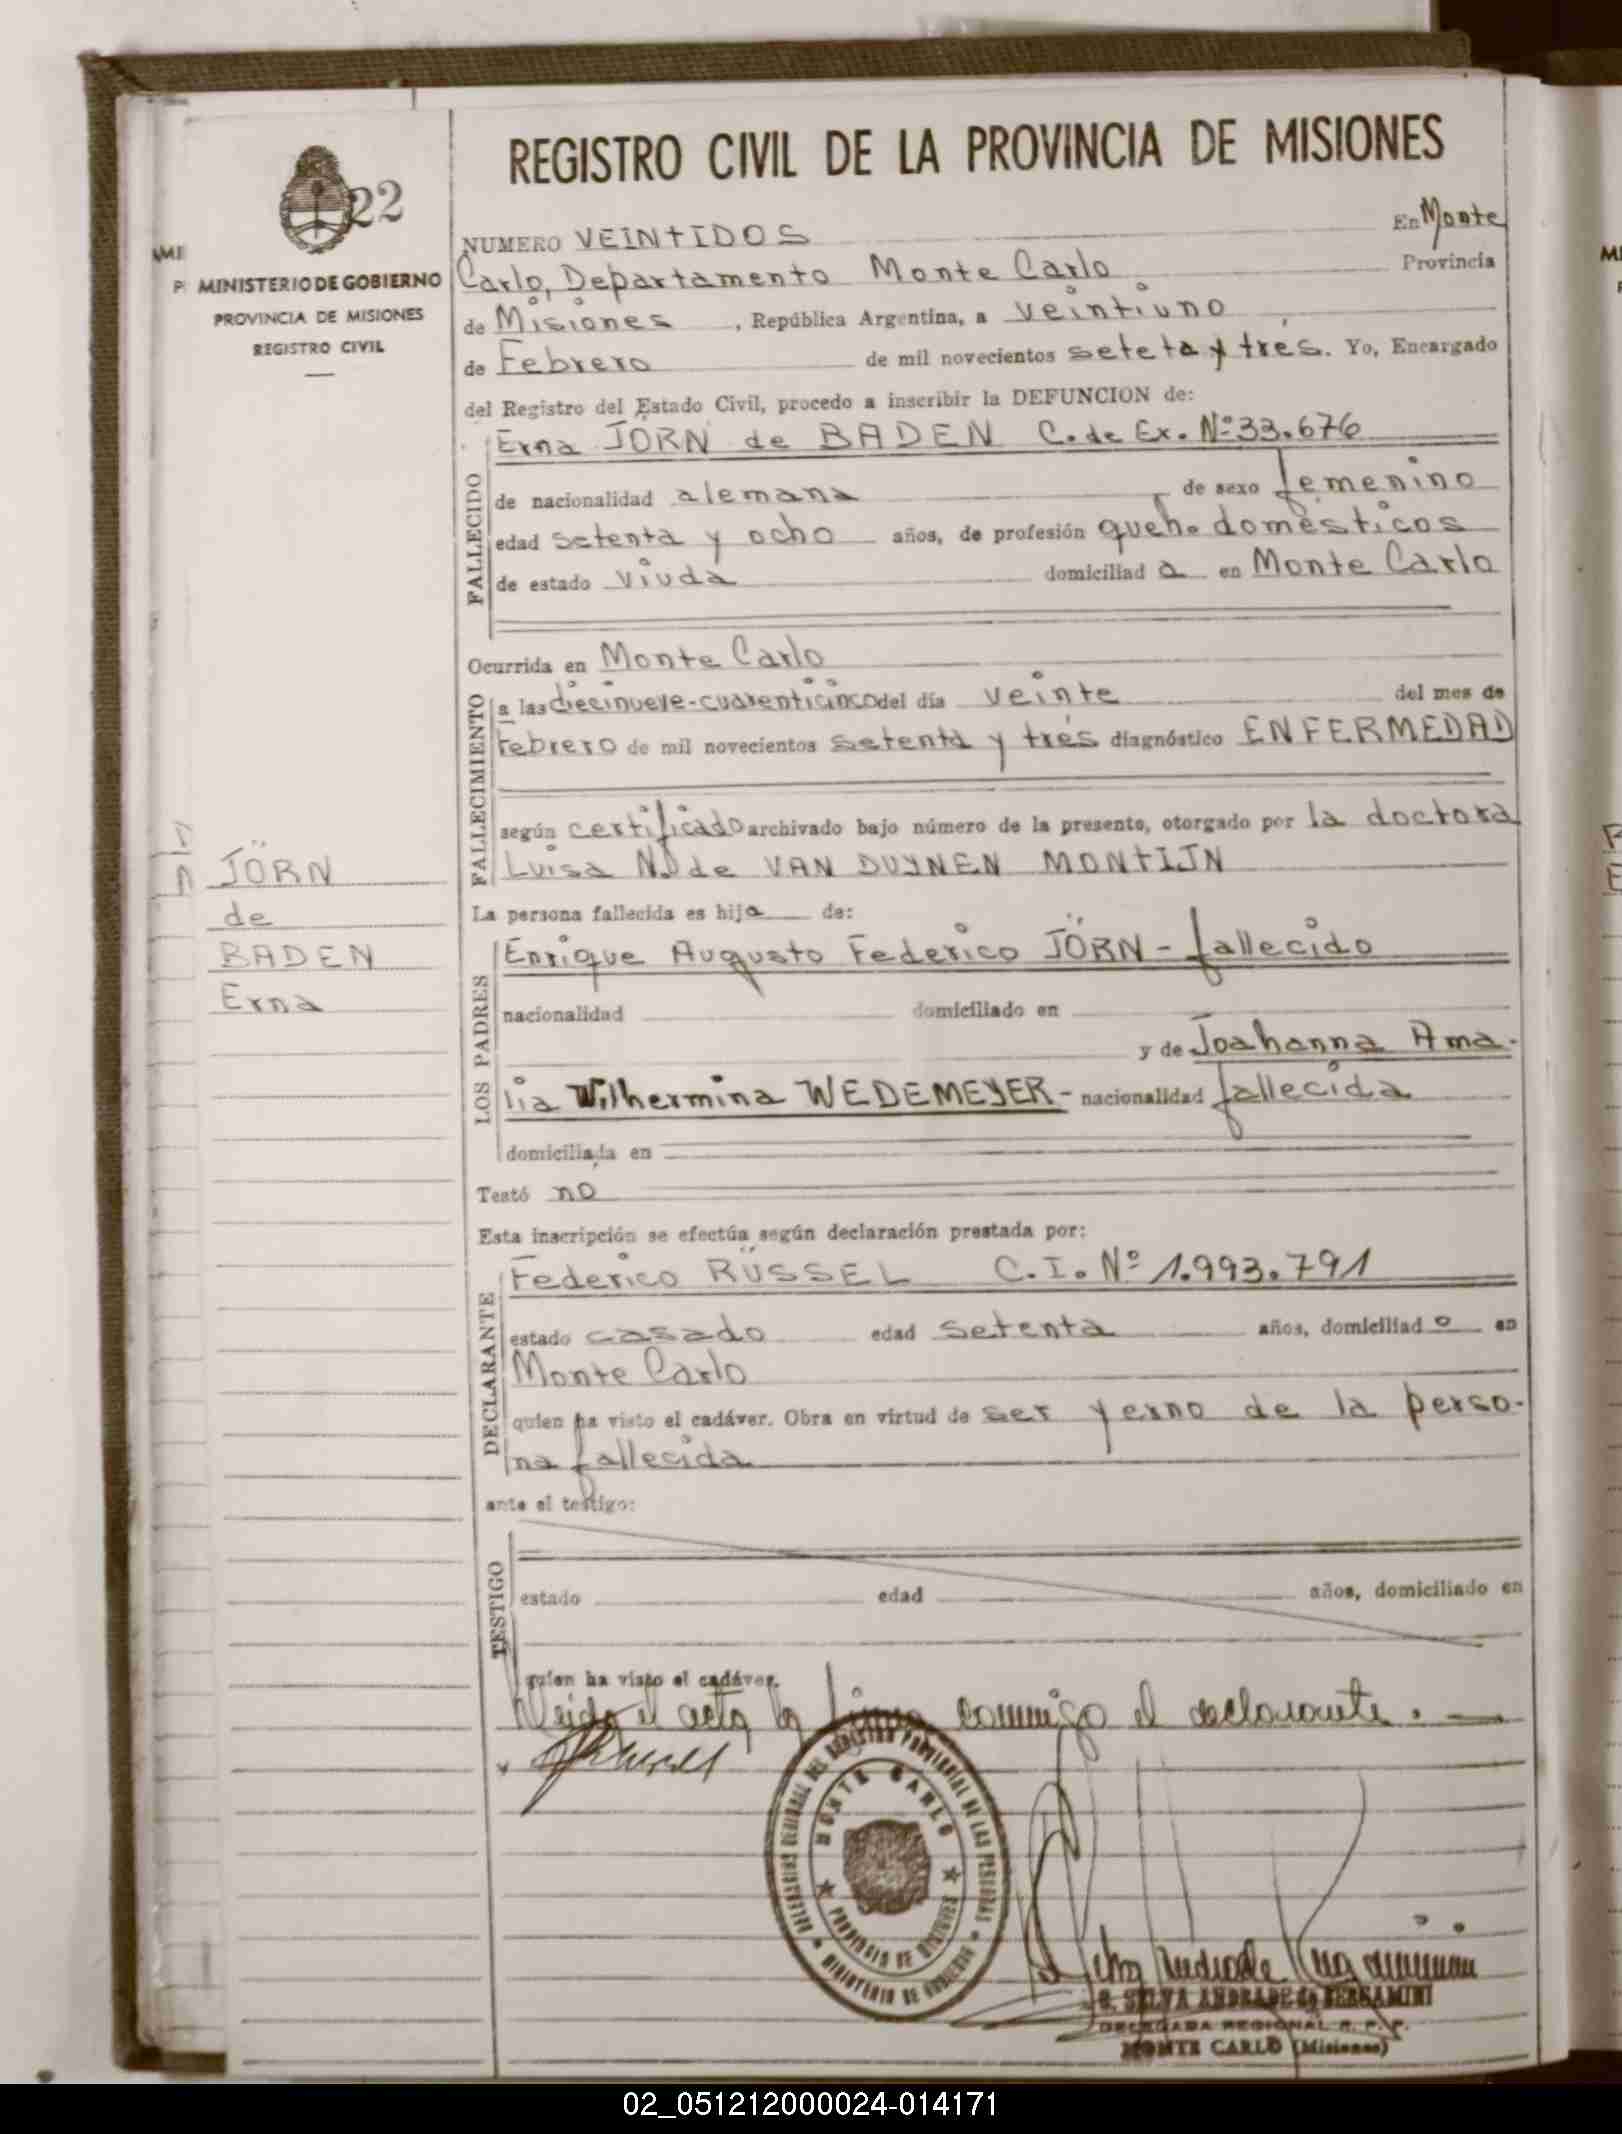 REGISTRO CIVIL DE LA PROVINCIA DE MISIONES
22
MINISTERIO DE GOBIERNO
PROVINCIA DE MISIONES
REGISTRO CIVIL
JÖRN
de
BADEN
Erna
NUMERO VEINTIDOS En Monte
Carlo, Departamento Monte Carlo Provincia
de Misiones, República Argentina, a veintiuno
de Febrero de mil novecientos seteta y tres. Yo, Encargado
del Registro del Estado Civil, procedo a inscribir la DEFUNCION de:
FALLECIDO
Erna JÖRN de BADEN C. de Ex. Nº 33.676
de nacionalidad alemana de sexo femenino
edad setenta y ocho años, de profesión queh. domésticos
de estado viuda domiciliad a en Monte Carlo
Ocurrida en Monte Carlo
FALLECIMIENTO
a las diecinueve-cuarenticinco del día veinte del mes de
Febrero de mil novecientos setenta y tres diagnóstico ENFERMEDAD
según certificado archivado bajo número de la presente, otorgado por la doctora
Luisa N. de VAN DUYNEN MONTIJN
La persona fallecida es hija de:
LOS PADRES
Enrique Augusto Federico JÖRN - fallecido
nacionalidad domiciliado en
y de Joahanna Ama-
lia Wilhermina WEDEMEYER - nacionalidad fallecida
domiciliada en
Testó no
Esta inscripción se efectúa según declaración prestada por:
DECLARANTE
Federico RÜSSEL C.I. Nº 1.993.791
estado casado edad setenta años, domiciliad o en
Monte Carlo
quien ha visto el cadáver. Obra en virtud de ser yerno de la perso-
na fallecida
ante el testigo:
TESTIGO
estado edad años, domiciliado en
quien ha visto el cadáver.
Leída el acta la firma conmigo el declarante.
DELEGACION REGIONAL DEL REGISTRO PROVINCIAL DE LAS PERSONAS
MINISTERIO DE GOBIERNO
MONTE CARLO
PROVINCIA DE MISIONES
S. SELVA ANDRADE de BERGAMINI
DELEGADA REGIONAL R. P. P.
MONTE CARLO (Misiones)
02_051212000024-014171